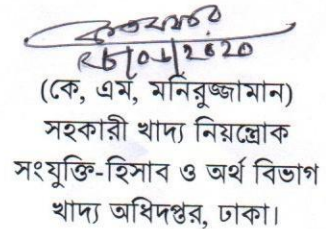 (কে, এম, মনিরুজ্জামান)
সহকারী খাদ্য নিয়ন্ত্রোক
সংযুক্তি-হিসাব ও অর্থ বিভাগ
খাদ্য অধিদপ্তর, ঢাকা।